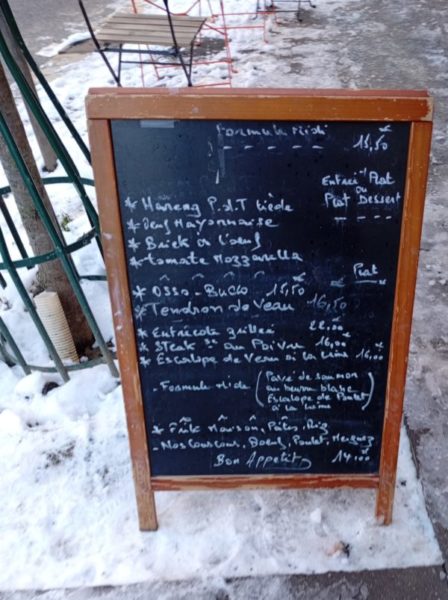 Formula Midi 15,50 €
Entrée + Plat
ou
Plat Dessert
* Hareng P.d.T tiède
* Oeuf Mayonnaise
* Brick à l'oeuf
* tomate Mozzarella
Plat
* Osso-Buco 15,50 €
* Tendron de Veau 16,50
* Entrecôte grillée 22,00 €
* Steak au Poivre 16,00 €
* Escalope de Veau à la crème 16,00
- Formule Midi (Pavé de saumon
au beurre blanc
Escalope de Poulet
à la crème)
* Frite Maison, Pâtes, Riz
- Nos Couscous, Boeuf, Poulet, Merguez
Bon Appetit 14,00 €